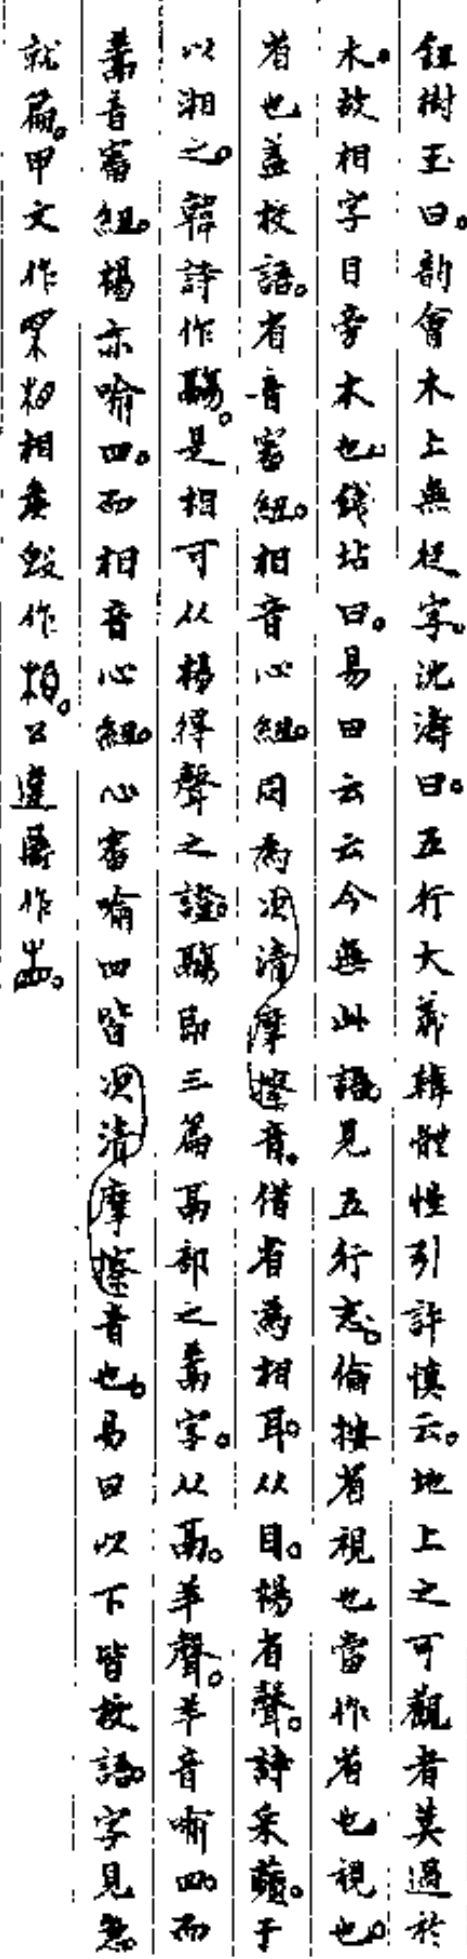 鈕樹玉曰。韵會木上無從字。沈濤曰。五行大義釋體性引許慎云。地上之可觀者莫過於
木。故相字目旁木也。錢坫曰。易曰云云今無此語。見五行志。倫按省視也當作省也視也。
省也蓋校語。省音審紐。相音心紐。同為次清摩擦音。借省為相耳。从目。楊省聲。詩采蘋。于
以湘之。韓詩作鬺。是相可从楊得聲之證。鬺即三篇鬲部之䰞字。从鬲。羊聲。羊音喻四。而
䰞音審紐。楊亦喻四。而相音心紐。心審喻四皆次清摩擦音也。易曰以下皆校語。字見急
就篇。甲文作 相矦 作 。公違 作 。